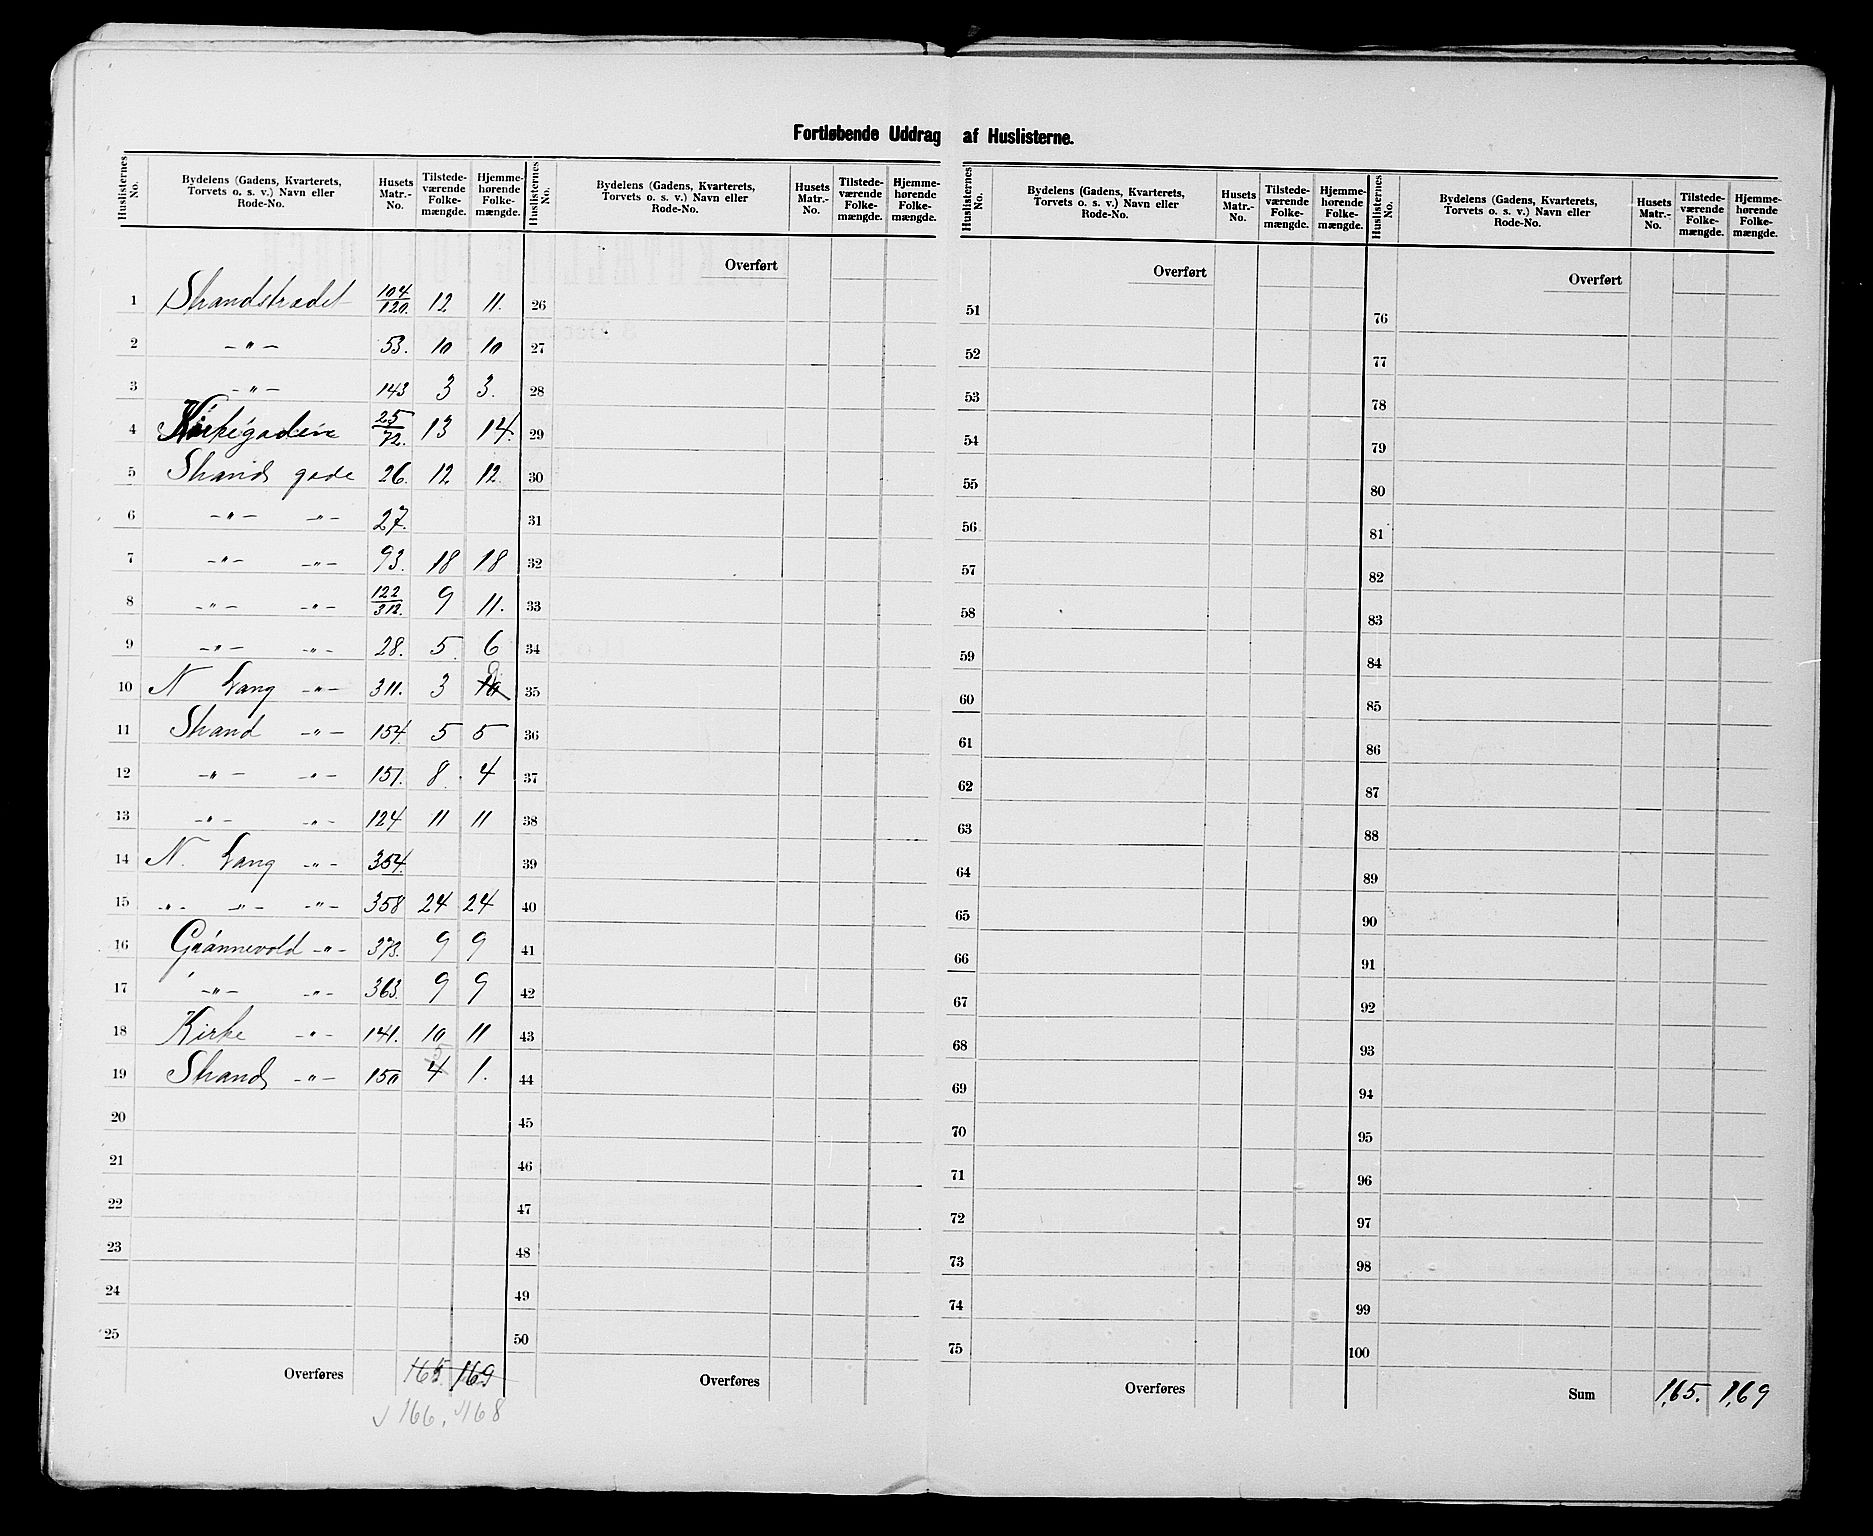 Fortløbende Uddrag af Huslisterne.
Huslisternes No. Bydelens (Gadens, Kvarterets, Torvets o. s. v.) Navn eller Rode-No. Husets Matr.-No. Tilstedeværende Folkemængde. Hjemmehørende Folkemængde.
1 Strandstrædet 104/120. 12 11.
2 -"- 53. 10 10
3 -"- 143 3 3.
4 Kirkegaden 25/72. 13 14.
5 Strands gade 26. 12 12.
6 -"- -"- 27.
7 -"- -"- 93. 18 18
8 -"- -"- 122/312. 9 11.
9 -"- -"- 28. 5. 6
10 N Lang -"- 311. 3 10 9
11 Strand -"- 154. 5 5
12 -"- -"- 151. 8. 4
13 -"- -"- 124 11 11
14 N. Lang -"- 354.
15 -"- -"- -"- 358 24 24
16 Grønnevold -"- 373. 9 9
17 -"- -"- 363. 9 9
18 Kirke -"- 141. 10 11
19 Strands -"- 150 4 5 1.
20
21
22
23
24
25
Overføres 165. 169
√ 166. √168
Huslisternes No. Bydelens (Gadens, Kvarterets, Torvets o. s. v.) Navn eller Rode-No. Husets Matr.-No. Tilstedeværende Folkemængde. Hjemmehørende Folkemængde.
Overført
26
27
28
29
30
31
32
33
34
35
36
37
38
39
40
41
42
43
44
45
46
47
48
49
50
Overføres
Huslisternes No. Bydelens (Gadens, Kvarterets, Torvets o. s. v.) Navn eller Rode-No. Husets Matr.-No. Tilstedeværende Folkemængde. Hjemmehørende Folkemængde.
Overført
51
52
53
54
55
56
57
58
59
60
61
62
63
64
65
66
67
68
69
70
71
72
73
74
75
Overføres
Huslisternes No. Bydelens (Gadens, Kvarterets, Torvets o. s. v.) Navn eller Rode-No. Husets Matr.-No. Tilstedeværende Folkemængde. Hjemmehørende Folkemængde.
Overført
76
77
78
79
80
81
82
83
84
85
86
87
88
89
90
91
92
93
94
95
96
97
98
99
100
Sum 165. 169